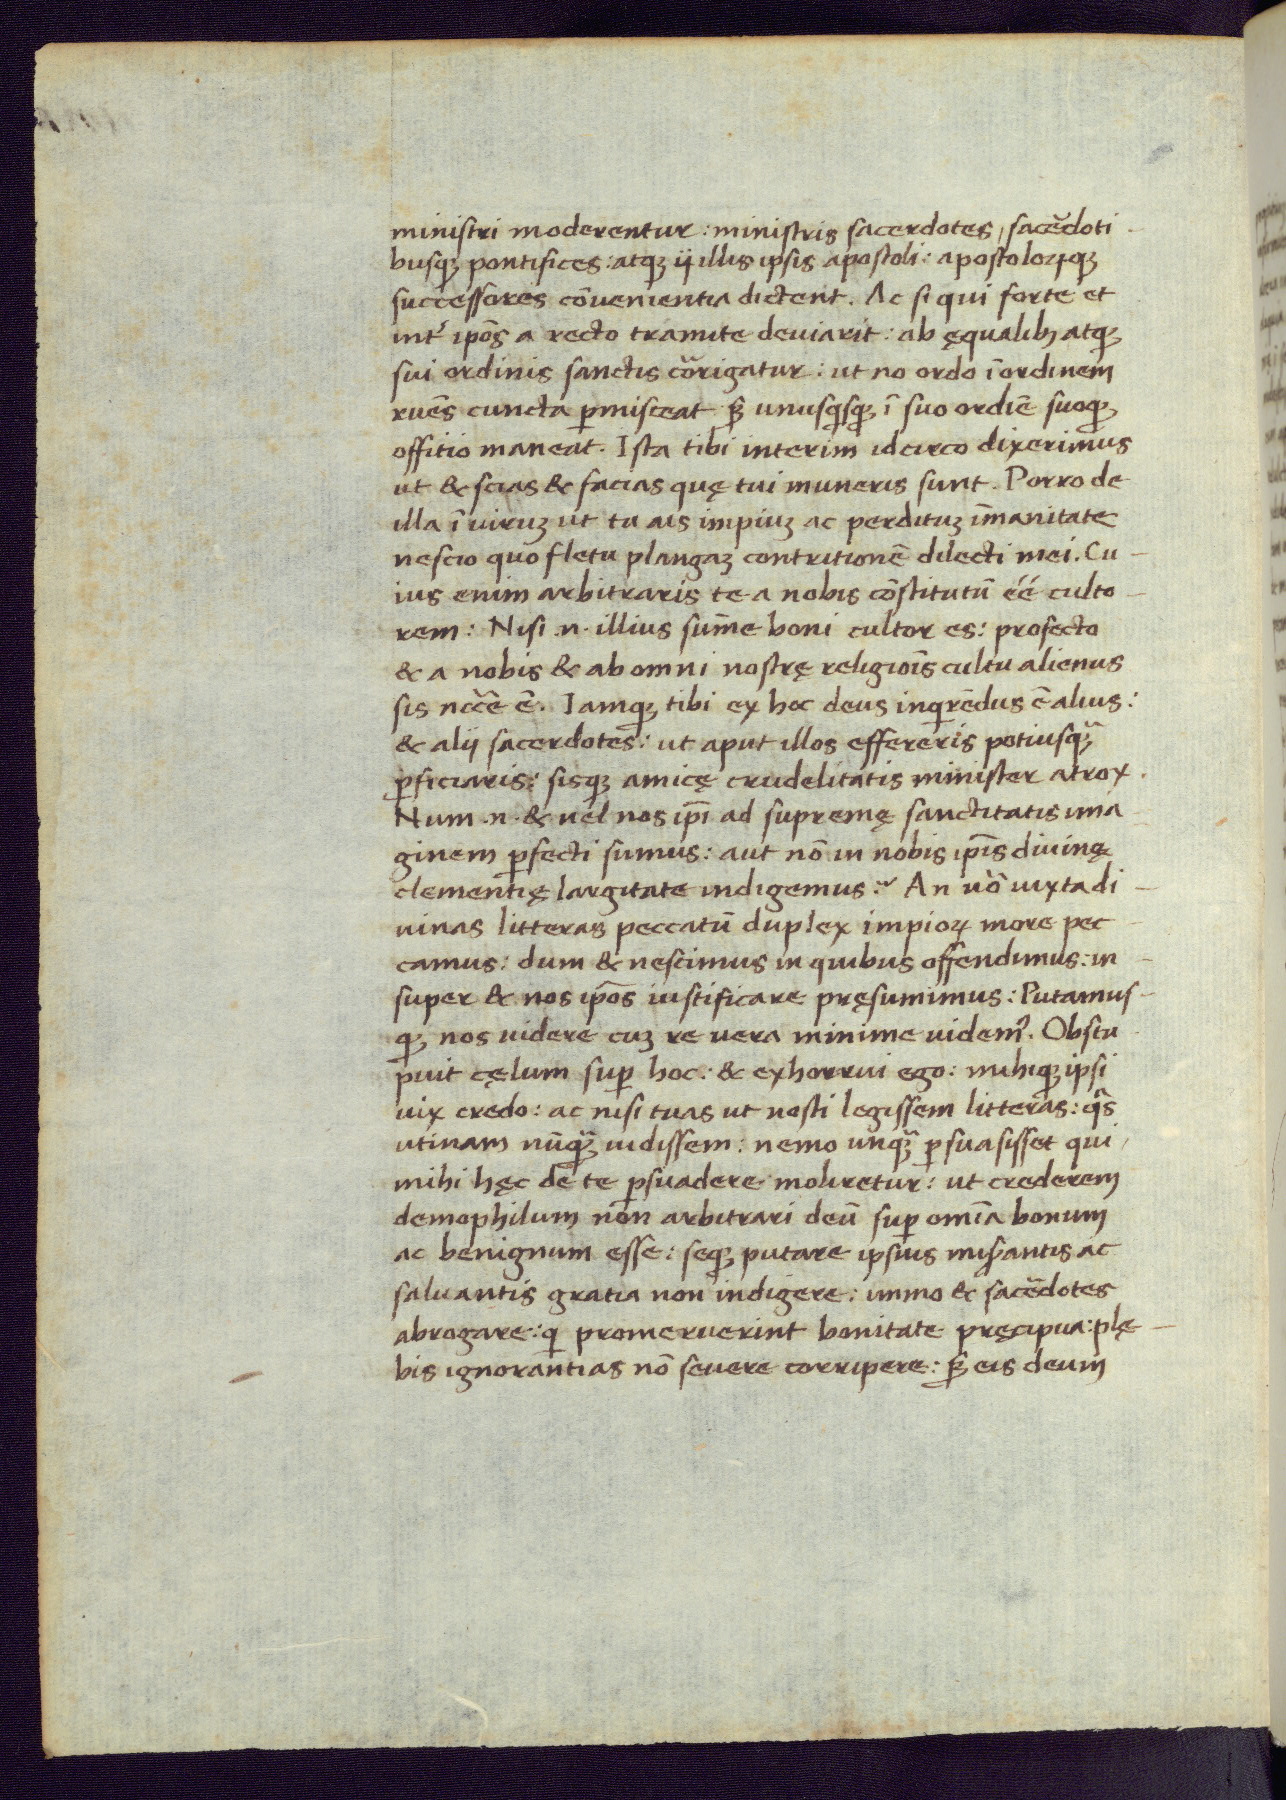 ministri moderentur : ministris sacerdotes, sacẽdoti-
busqꝫ pontifices : atqꝫ ij illis ipsis apostoli : apostoloꝝqꝫ
successores cõvenientia dictent. Ac si qui forte et
int' ip̃os a recto tramite deviarit : ab ęqualibꝫ atqꝫ
sui ordinis sanctis cõrigatur : ut no ordo ĩ ordinem
ruẽs cuncta ꝑmisceat sꝫ unusq̃sqꝫ ĩ suo ordiẽ suoqꝫ
offitio maneat. Ista tibi interim idcirco dixerimus
ut & scias & facias quę tui muneris sunt. Porro de
illa ĩ viruꝫ ut tu ais impiuꝫ ac perdituꝫ ĩmanitate
nescio quo fletu plangaꝫ contritionẽ dilecti mei. Cu-
ius enim arbitraris te a nobis cõstitutũ éé culto-
rem : Nisi .n. illius sum̃e boni cultor es : profecto
& a nobis & ab omni nostrę religiõis cultu alienus
sis nccẽ ẽ. Iamqꝫ tibi ex hoc deus inqrẽdus ẽ alius :
& alij sacerdotes : ut aput illos effereris potiusqꝫ̃
ꝑficiaris : sisqꝫ amicę crudelitatis minister atrox.
Num .n. & uel nos ip̃i ad supremę sanctitatis ima-
ginem ꝑfecti sumus : aut nõ in nobis ip̃is divinę
clementię largitate indigemus : An ũo iuxta di-
uinas litteras peccatũ duplex impioꝝ more pec-
camus : dum & nescimus in quibus offendimus : in-
super & nos ip̃os iustificare pręsumimus : Putamus-
qꝫ nos uidere cuꝫ re vera minime uidem᾿. Obstu-
puit cęlum suꝑ hoc : & exhorrui ego : mihiqꝫ ipsi
uix credo : ac nisi tuas ut nosti legissem litteras : q̃s
utinam nũqꝫ̃ uidissem : nemo unqꝫ̃ ꝑsuasisset qui
mihi hęc de te ꝑsuadere moliretur : ut crederem
demophilum non arbitrari deũ suꝑ omĩa bonum
ac benignum esse : seqꝫ putare ipsius misẽrantis ac
saluantis gratia non indigere : immo & sacẽdotes
abrogare : qi promeruerint bonitate pręcipua : plę-
bis ignorantias nõ seuere corripere : sꝫ eis deum